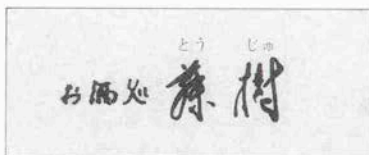 とう じゅ
お酒処 藤樹